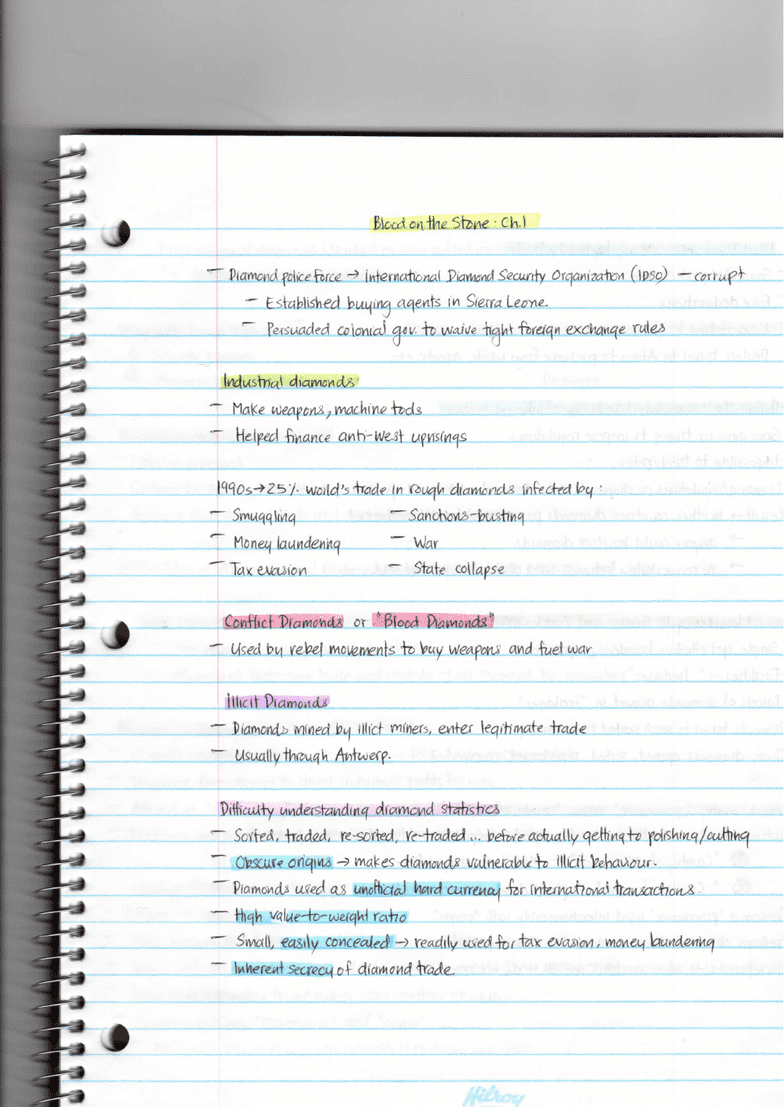 Blood on the Stone: Ch.1
— Diamond police force → International Diamond Security Organization (IDSO) — corrupt
— Established buying agents in Sierra Leone.
— Persuaded colonial gov. to waive tight foreign exchange rules
Industrial diamonds
— Make weapons, machine tools
— Helped finance anti-west uprisings
1990s → 25% world's trade in rough diamonds infected by:
— Smuggling — Sanctions-busting
— Money laundering — War
— Tax evasion — State collapse
Conflict Diamonds or "Blood Diamonds"
— Used by rebel movements to buy weapons and fuel war
Illicit Diamonds
— Diamonds mined by illict miners, enter legitimate trade
— Usually through Antwerp.
Difficulty understanding diamond statistics
— Sorted, traded, re-sorted, re-traded... before actually getting to polishing/cutting
— Obscure origins → makes diamonds vulnerable to illicit behaviour.
— Diamonds used as unofficial hard currency for international transactions
— High value-to-weight ratio
— Small, easily concealed → readily used for tax evasion, money laundering
— Inherent secrecy of diamond trade.
Hilroy